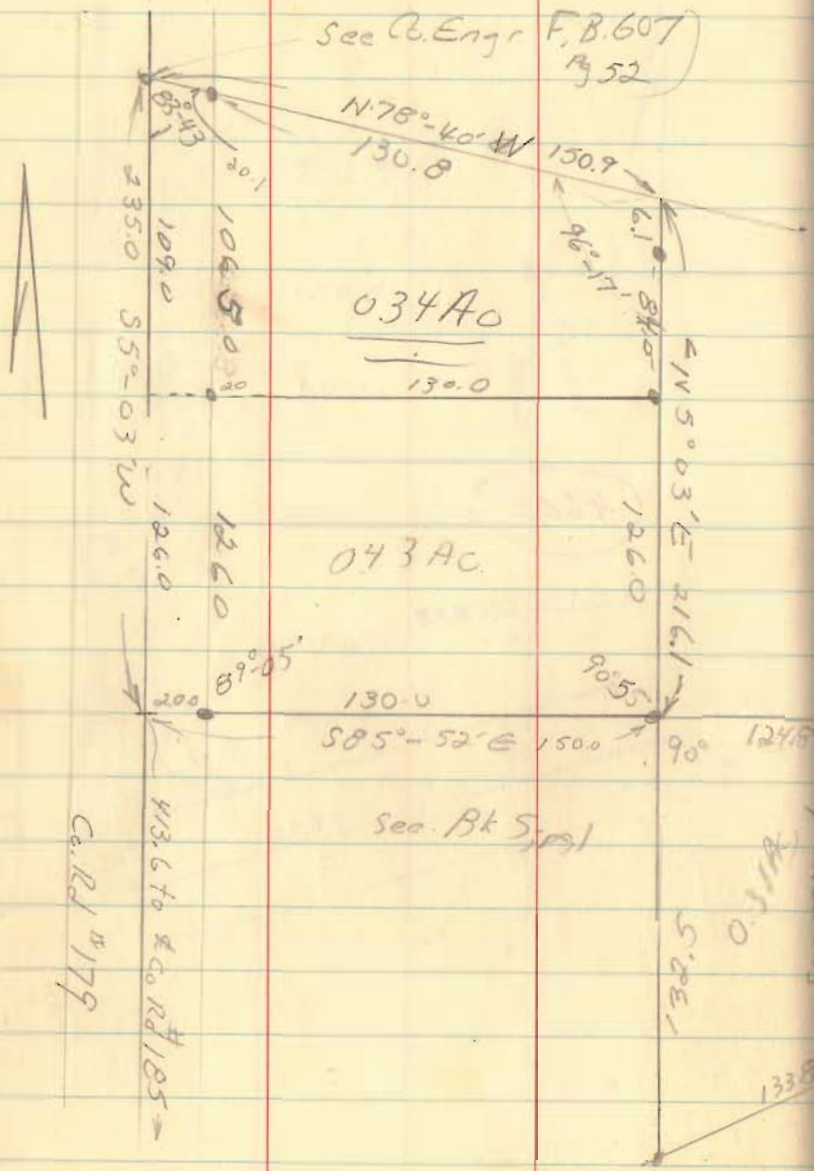 See Co. Engr F.B. 607
Pg 52
N 78°-40' W
130.8
150.9
83°-43'
20.1
109.0
106.5
6.1
96°-17'
0.34 Ac
20
130.0
235.0 S5°-03' W
N 5° 03' E 216.1
126.0
126.0
126.0
0.43 Ac.
89°-05'
90°55'
20.0
130.0
S85°-52' E 150.0
90°
124.8
See Bk 5, pg 1
413.6 to ℄ Co. Rd # 185
Co. Rd # 179
132.5
133.8